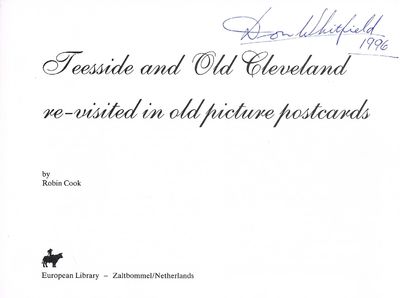 Don Whitfield
1996
Teesside and Old Cleveland
re-visited in old picture postcards
by
Robin Cook
European Library – Zaltbommel/Netherlands